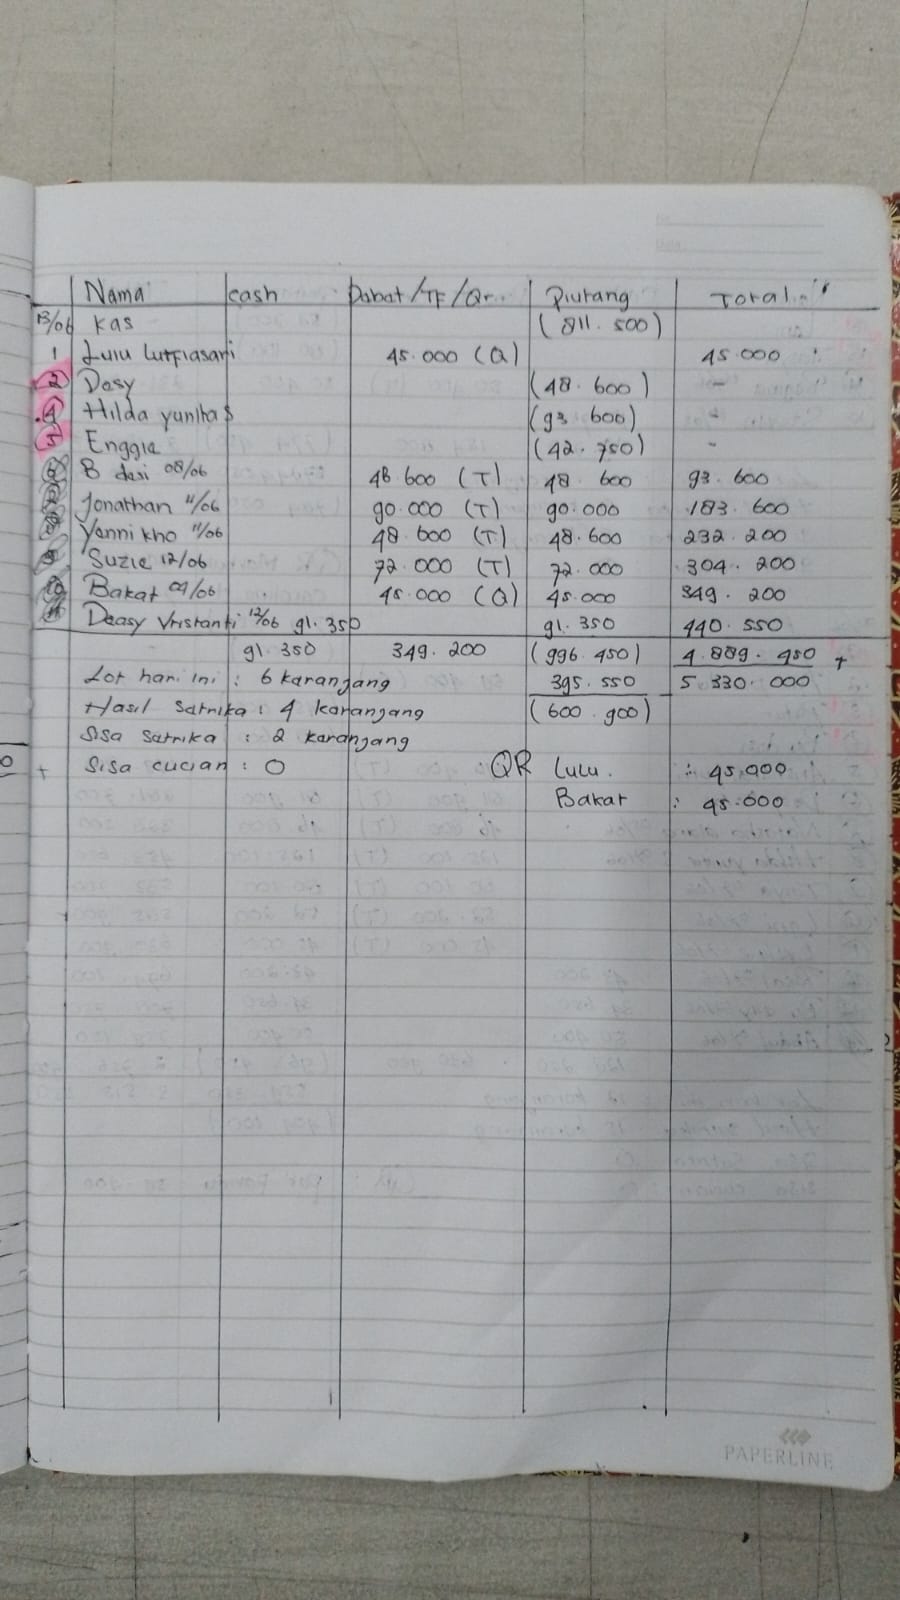 Nama cash Dabat/TF/Qr.. Piutang Total
13/06 kas (811.500)
1 Lulu Lutfiasari 45.000 (Q) 45.000
2 Desy (48.600) -
4 Hilda yunitas (93.600) -
5 Enggia (42.750) -
B desi 08/06 48.600 (T) 48.600 93.600
Jonathan 11/06 90.000 (T) 90.000 183.600
Yenni kho 11/06 48.600 (T) 48.600 232.200
Suzie 12/06 72.000 (T) 72.000 304.200
Bakat 09/06 45.000 (Q) 45.000 349.200
Deasy Vristanti 12/06 91.350 91.350 440.550
91.350 349.200 (996.450) 4.889.450 +
Lot hari ini : 6 karanjang 395.550 5.330.000
Hasil Satrika : 4 karanjang (600.900)
Sisa Satrika : 2 karanjang
+ Sisa cucian : 0 QR Lulu. : 45.000
Bakat : 45.000
PAPERLINE